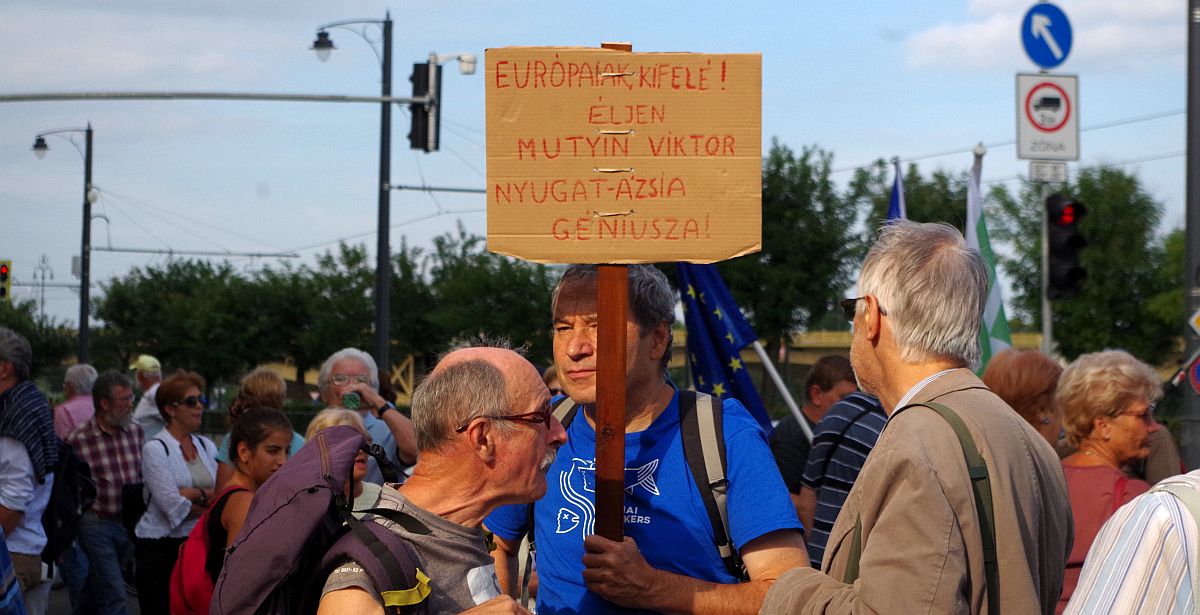 EURÓPAIAK, KIFELÉ!
ÉLJEN
MUTYIN VIKTOR
NYUGAT-ÁZSIA
GÉNIUSZA!
ZÓNA